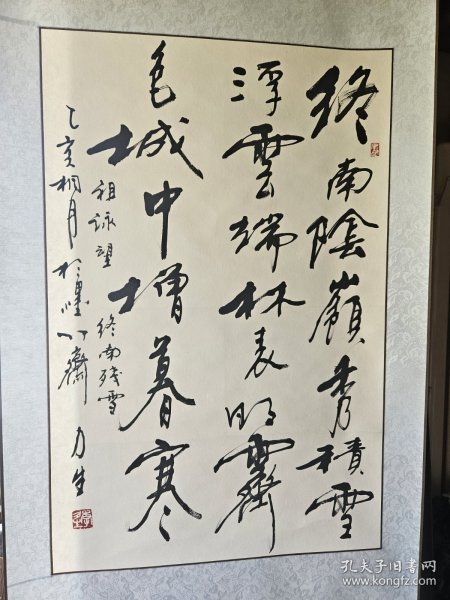 終南陰嶺秀積雪
浮雲端林表明霽
色城中增暮寒
祖詠望終南残雪
乙亥桐月於 齋 力生
孔夫子旧书网
www.kongfz.com